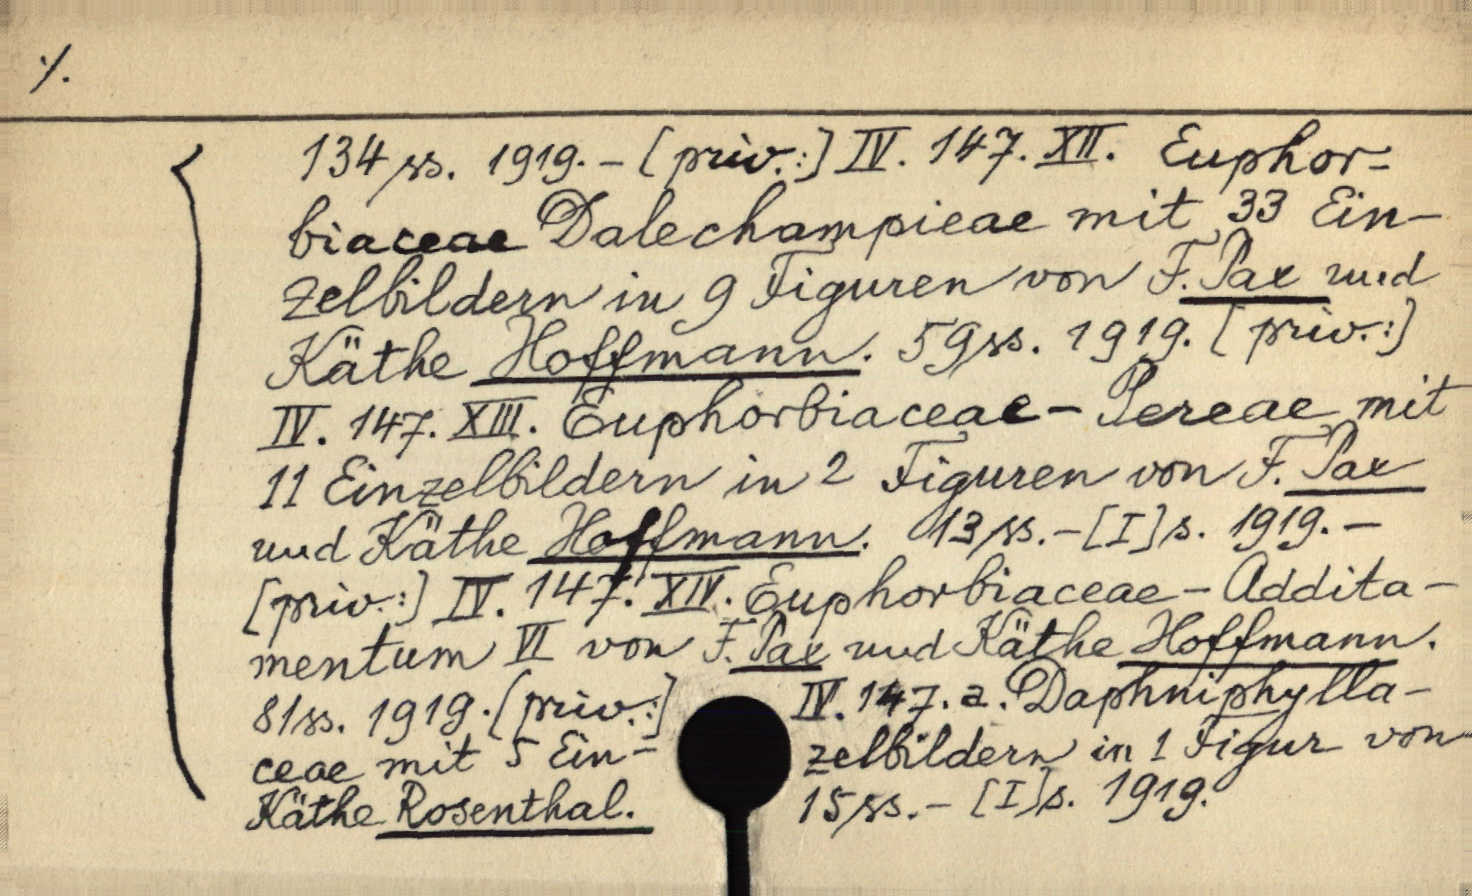 ·/.
134 ss. 1919. – [priv.:] IV. 147. XII. Euphor=
biaceae Dalechampieae mit 33 Ein-
zelbildern in 9 Figuren von F. Pax und
Käthe Hoffmann. 59 ss. 1919. [priv.:]
IV. 147. XIII. Euphorbiaceae – Pereae mit
11 Einzelbildern in 2 Figuren von F. Pax
und Käthe Hoffmann. 13 ss. – [I] s. 1919. –
[priv.:] IV. 147. XIV. Euphorbiaceae – Addita-
mentum VI von F. Pax und Käthe Hoffmann.
81 ss. 1919. [priv.:] IV. 147. a. Daphniphylla-
ceae mit 5 Ein- zelbildern in 1 Figur von
Käthe Rosenthal. 15 ss. – [I] s. 1919.